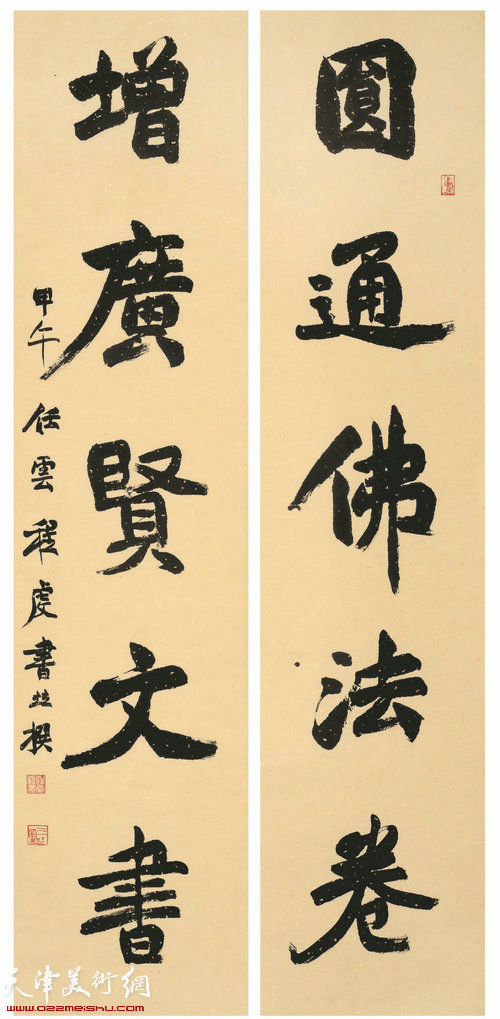 圓通佛法卷
增廣賢文書
甲午任雲程虔書並撰
天津美術網
www.022meishu.com